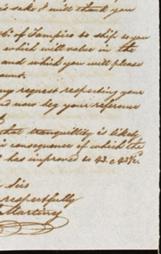 sake I will thank you
of Tampico to ship to you
which will value in the
and which you will please
ount.
my request respecting your
and now beg your reference
that tranquillity is likely
in consequence of which the
has improved to 43 a 43½.
Sirs
respectfully
Martinez